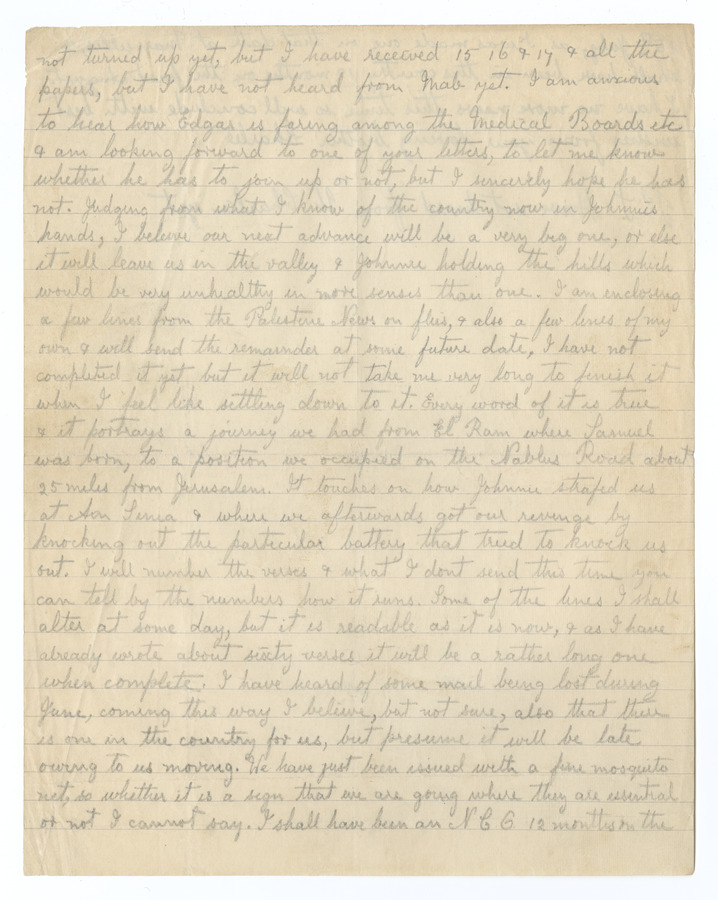 not turned up yet, but I have received 15 16 & 17 & all the
papers, but I have not heard from Mab yet. I am anxious
to hear how Edgar is faring among the Medical Boards etc
& am looking forward to one of your letters, to let me know
whether he has to join up or not, but I sincerely hope he has
not. Judging from what I know of the country now in Johnnie's
hands, I believe our next advance will be a very big one, or else
it will leave us in the valley & Johnnie holding the hills which
would be very unhealthy in more senses than one. I am enclosing
a few lines from the Palestine News on flies, & also a few lines of my
own & will send the remainder at some future date, I have not
completed it yet but it will not take me very long to finish it
when I feel like settling down to it. Every word of it is true
& it portrays a journey we had from El Ram where Samuel
was born, to a position we occupied on the Nablus Road about
25 miles from Jerusalem. It touches on how Johnnie strafed us
at Ain Sinia & where we afterwards got our revenge by
knocking out the particular battery that tried to knock us
out. I will number the verses & what I dont send this time you
can tell by the numbers how it runs. Some of the lines I shall
alter at some day, but it is readable as it is now, & as I have
already wrote about sixty verses it will be a rather long one
when complete. I have heard of some mail being lost during
June, coming this way I believe, but not sure, also that there
is one in the country for us, but presume it will be late
owing to us moving. We have just been issued with a fine mosquito
net, so whether it is a sign that we are going where they are essential
or not I cannot say. I shall have been an N C O 12 months on the